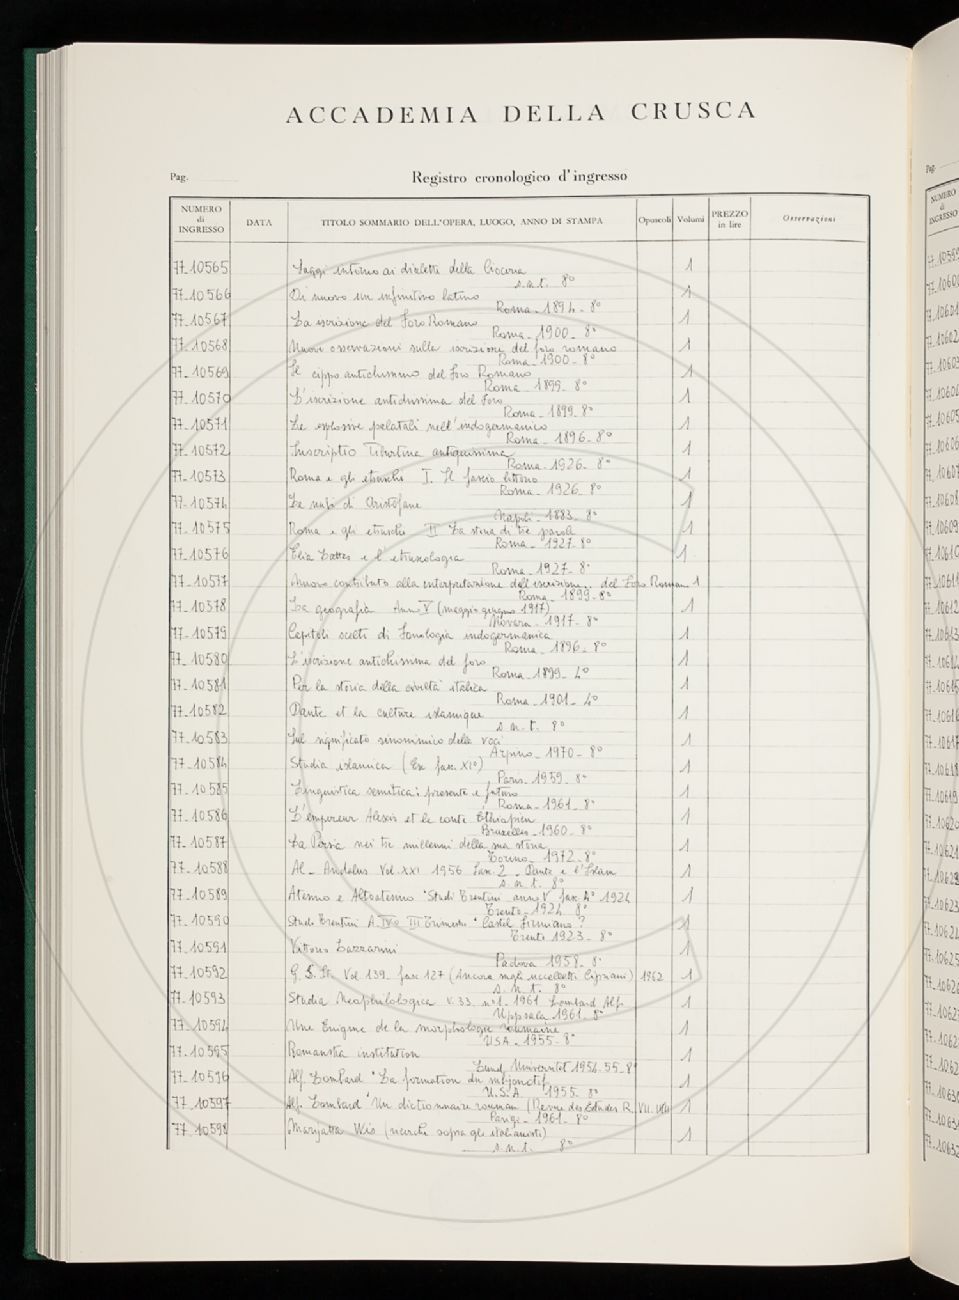 ACCADEMIA DELLA CRUSCA
Pag.
Registro cronologico d'ingresso
NUMERO di INGRESSO DATA TITOLO SOMMARIO DELL'OPERA, LUOGO, ANNO DI STAMPA Opuscoli Volumi PREZZO in lire Osservazioni
77-10565 Saggi intorno ai dialetti della Ciociaria 1
s.n.t. 8°
77-10566 Di nuovo un infinitivo latino 1
Roma - 1894 - 8°
77-10567 La iscrizione del Foro Romano 1
Roma - 1900 - 8°
77-10568 Nuove osservazioni sulla iscrizione del foro romano 1
Roma - 1900 - 8°
77-10569 Il cippo antichissimo del Foro Romano 1
Roma 1899 - 8°
77-10570 L'iscrizione antichissima del Foro 1
Roma - 1899 - 8°
77-10571 Le esplosive palatali nell'indogermanico 1
Roma - 1896 - 8°
77-10572 Inscriptio Tiburtina antiquissima 1
Roma - 1926 - 8°
77-10573 Roma e gli etruschi I. Il fascio littorio 1
Roma - 1926 8°
77-10574 Le nubi di Aristofane 1
Napoli - 1883 - 8°
77-10575 Roma e gli etruschi II La stima di tre parole 1
Roma - 1927 - 8°
77-10576 Elia Lattes e l'etruscologia 1
Roma - 1927 - 8°
77-10577 Nuovo contributo alla interpretazione dell'iscrizione.. del Foro Romano 1
Roma - 1899 - 8°
77-10578 La geografia Anno V (maggio giugno 1917) 1
Novara - 1917 - 8°
77-10579 Capitoli scelti di Fonologia indogermanica 1
Roma - 1896 - 8°
77-10580 L'iscrizione antichissima del foro 1
Roma - 1899 - 4°
77-10581 Per la storia della civiltà italica 1
Roma - 1901 - 4°
77-10582 Dante et la culture islamique 1
s.n.t. 8°
77-10583 Sul significato sinonimico della voci 1
Arpino - 1970 - 8°
77-10584 Studia islamica (Ex fasc. XI°) 1
Paris - 1959 - 8°
77-10585 Linguistica semitica: presente e futuro 1
Roma - 1961 - 8°
77-10586 L'Empereur Alexis et le conte Ethiopien 1
Bruxelles - 1960 - 8°
77-10587 La Persia nei tre millenni della sua storia 1
Torino - 1972 - 8°
77-10588 Al-Andalus Vol. XXI 1956 Fasc. 2 - Dante e l'Islam 1
s.n.t. 8°
77-10589 Atesino e Altoatesino "Studi Trentini anno V fasc. 4° 1924 1
Trento - 1924 8°
77-10590 Studi Trentini A. IV° III Trimestre "Castel Firmiano? 1
Trento 1923 - 8°
77-10591 Vittorio Lazzarini 1
Padova 1958 - 8°
77-10592 G. S. It. Vol 139 - fasc 127 (Ancora sugli uccelletti Cipriani) 1962 1
s.n.t. 8°
77-10593 Studia Neophilologica v. 33. n° 1. 1961 Lombard Alf. 1
Uppsala 1961 8°
77-10594 Une Enigme de la morphologie roumaine 1
USA - 1955 - 8°
77-10595 Romanska institution 1
Lund Universitet 1954-55 - 8°
77-10596 Alf Lombard "La formation du subjonctif 1
U.S.A 1955 - 8°
77-10597 Alf. Lombard "Un dictionnaire roumain (Revue des Etudes R. VII. VIII 1
Parigi - 1961 - 8°
77-10598 Marjatta Wis (ricerche sopra gli italianismi) 1
s.n.t. 8°